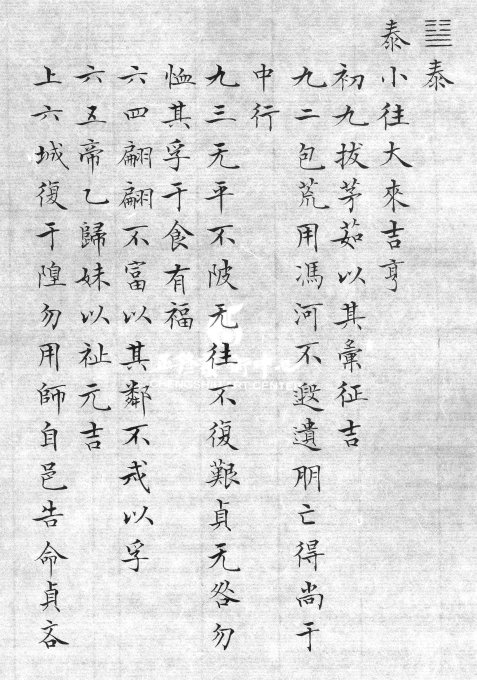 ䷊泰
泰小往大來吉亨
初九拔茅茹以其彙征吉
九二包荒用馮河不遐遺朋亡得尚于
中行
九三无平不陂无往不復艱貞无咎勿
恤其孚于食有福
六四翩翩不富以其鄰不戒以孚
六五帝乙歸妹以祉元吉
上六城復于隍勿用師自邑告命貞吝